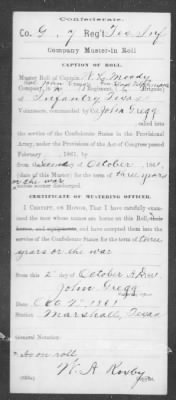 Confederate.
Co. G, 7 Reg't Tex Inf
Company Muster-In Roll
CAPTION OF ROLL.
Muster Roll of Captain K. M. Moody
Company in the Regiment
of Infantry Texas
Volunteers, commanded by Col John Gregg
called into
the service of the Confederate States in the Provisional
Army, under the Provisions of the Act of Congress passed
February , 1861, by
from the Second of October, 1861,
(date of this Muster) for the term of three years
or the war
unless sooner discharged.
CERTIFICATE OF MUSTERING OFFICER.
I CERTIFY, ON HONOR, That I have carefully examined
the men whose names are borne on this Roll, their
horses, and equipments, and have accepted them into the
service of the Confederate States for the term of three
years or the war
from this 2d day of October
John Gregg
Date: Oct 2d 1861
Station Marshall, Texas
General Notation:
as on roll,